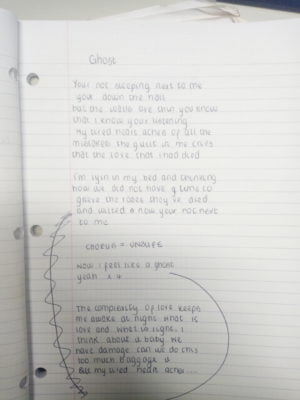 Ghost
Your not sleeping next to me
your down the hall
but the walls are thin you know
that I know your listening
My tired heart aches of all the
mistakes the guilt in me cries
that the love that I had died
I'm lyin in my bed and thinking
how we did not have time to
grieve the roses they've died
and wilted & now your not next
to me
CHORUS =
Now I feel like a ghost
yeah x 4
The complexity of love keeps
me awake at night what is
love and what is right, I
think about a baby we
have damage can we do this
too much baggage
But my tired heart aches....